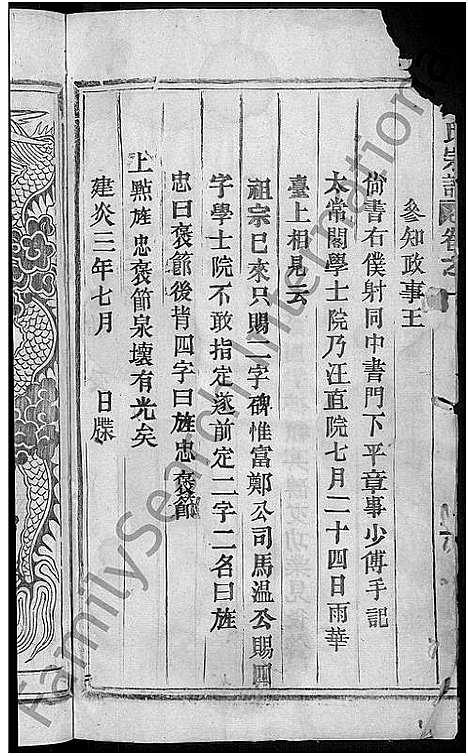 氏宗譜 卷之十
參知政事王
尙書右僕射同中書門下平章事少傅手記
太常關學士院乃汪直院七月二十四日雨華
臺上相見云
祖宗已來只賜二字碑惟富鄭公司馬温公賜四
字學士院不敢指定遂前定二字二名曰旌
忠曰褒節後肯四字曰旌忠褒節
上㸃旌忠褒節泉壤有光矣
建炎三年七月 日牒
FamilySearch International